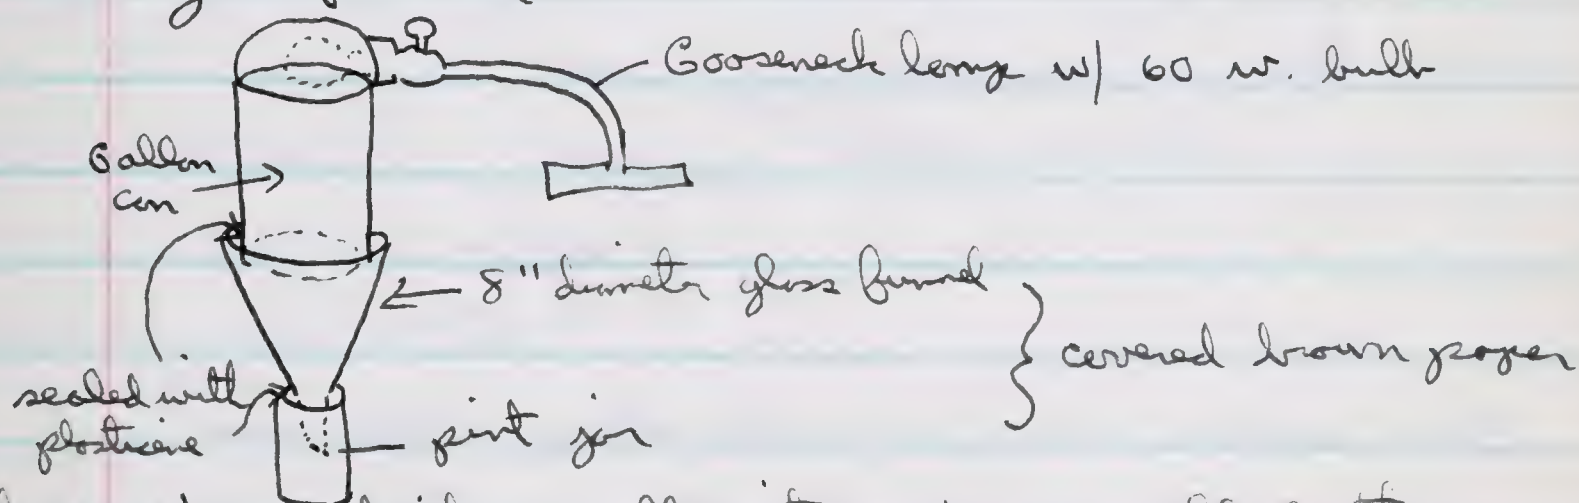 Gooseneck lamp w/ 60 w. bulb
Gallon
can
8" diameter glass funnel
covered brown paper
sealed with
plasticene
pint jar